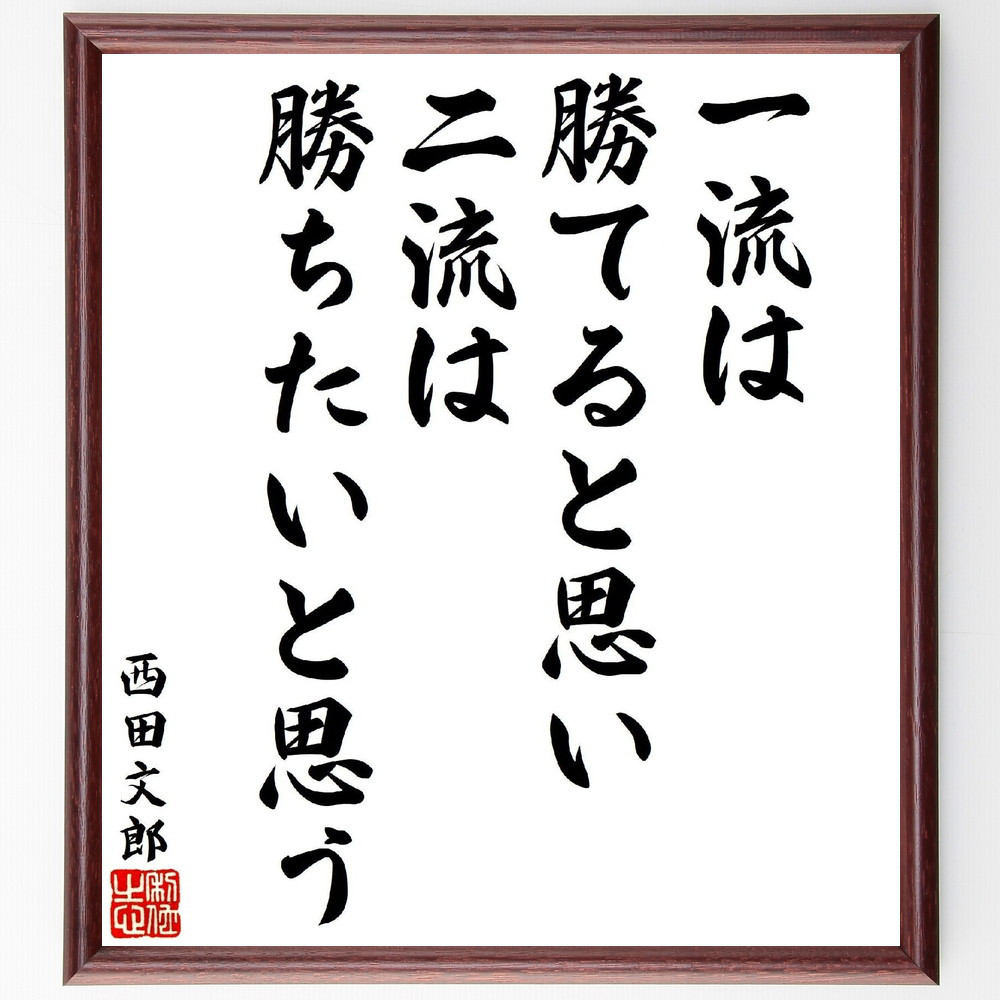 一流は
勝てると思い
二流は
勝ちたいと思う
西田文郎